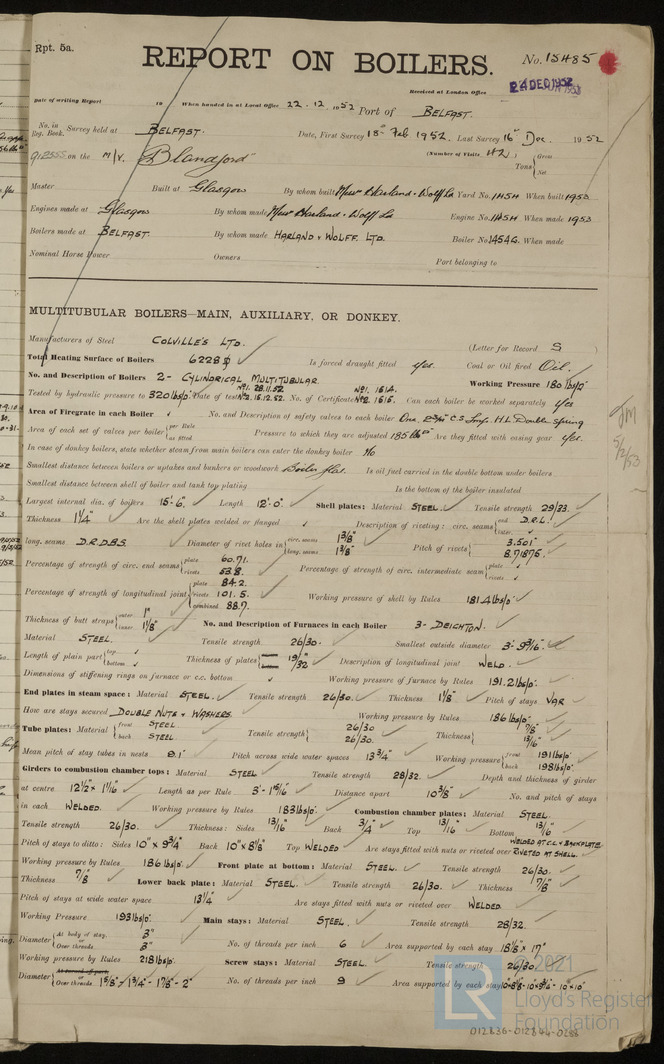 Rpt. 5a.
REPORT ON BOILERS.
No. 15485
Received at London Office
24 DEC 1952
Date of writing Report 19 When handed in at Local Office 22.12.1952 Port of BELFAST.
No. in Reg. Book. Survey held at BELFAST. Date, First Survey 18th Feb 1952. Last Survey 16th Dec. 1952
on the M/V. Blandford (Number of Visits 42) Tons Gross Net
Master Built at Glasgow By whom built Messrs Harland & Wolff Ld Yard No. 1454 When built 1953
Engines made at Glasgow By whom made Messrs Harland & Wolff Ld Engine No. 1454 When made 1953
Boilers made at BELFAST. By whom made HARLAND & WOLFF. LTD. Boiler No. 1454G. When made
Nominal Horse Power Owners Port belonging to
MULTITUBULAR BOILERS—MAIN, AUXILIARY, OR DONKEY.
Manufacturers of Steel COLVILLE'S LTD. (Letter for Record S)
Total Heating Surface of Boilers 6228 Is forced draught fitted yes. Coal or Oil fired Oil.
No. and Description of Boilers 2- CYLINDRICAL MULTITUBULAR Working Pressure 180 lbs/□"
Tested by hydraulic pressure to 320 lbs/□" Date of test No1. 28.11.52 No2. 15.12.52. No. of Certificate No1. 1614. No2. 1615. Can each boiler be worked separately yes
Area of Firegrate in each Boiler No. and Description of safety valves to each boiler One C.S. H.L. Double spring
Area of each set of valves per boiler per Rule as fitted Pressure to which they are adjusted 185 lbs Are they fitted with easing gear yes.
In case of donkey boilers, state whether steam from main boilers can enter the donkey boiler No
Smallest distance between boilers or uptakes and bunkers or woodwork Boiler flat. Is oil fuel carried in the double bottom under boilers
Smallest distance between shell of boiler and tank top plating Is the bottom of the boiler insulated
Largest internal dia. of boilers 15'-6" Length 12'-0" Shell plates: Material STEEL. Tensile strength 29/33.
Thickness 1¼" Are the shell plates welded or flanged Description of riveting: circ. seams end D.R.L. inter.
long. seams D.R.D.B.S. Diameter of rivet holes in circ. seams 1⅜" long. seams 1⅜" Pitch of rivets 3.501" 8.71875"
Percentage of strength of circ. end seams plate 60.71. rivets 53.8. Percentage of strength of circ. intermediate seam plate rivets
Percentage of strength of longitudinal joint plate 84.2. rivets 101.5. combined 88.7. Working pressure of shell by Rules 181.4 lbs/□"
Thickness of butt straps outer 1" inner 1⅛" No. and Description of Furnaces in each Boiler 3- DEIGHTON.
Material STEEL. Tensile strength 26/30. Smallest outside diameter 3'-9 3/16"
Length of plain part top bottom Thickness of plates 19/32" Description of longitudinal joint WELD.
Dimensions of stiffening rings on furnace or c.c. bottom Working pressure of furnace by Rules 191.2 lbs/□"
End plates in steam space: Material STEEL. Tensile strength 26/30. Thickness 1⅛" Pitch of stays VAR
How are stays secured DOUBLE NUTS & WASHERS. Working pressure by Rules 186 lbs/□"
Tube plates: Material front STEEL. back STEEL. Tensile strength 26/30 26/30. Thickness ⅞" 13/16"
Mean pitch of stay tubes in nests 9.1" Pitch across wide water spaces 13¾" Working pressure front 191 lbs/□" back 198 lbs/□"
Girders to combustion chamber tops: Material STEEL Tensile strength 28/32. Depth and thickness of girder
at centre 12½" x 1 1/16" Length as per Rule 3'-1 15/16" Distance apart 10⅜" No. and pitch of stays
in each WELDED. Working pressure by Rules 183 lbs/□" Combustion chamber plates: Material STEEL.
Tensile strength 26/30. Thickness: Sides 13/16" Back ¾" Top 13/16" Bottom 13/16"
Pitch of stays to ditto: Sides 10" x 9¾" Back 10" x 8⅞" Top WELDED Are stays fitted with nuts or riveted over WELDED AT C.C. & BACKPLATE RIVETED AT SHELL.
Working pressure by Rules 186 lbs/□" Front plate at bottom: Material STEEL. Tensile strength 26/30.
Thickness ⅞" Lower back plate: Material STEEL. Tensile strength 26/30. Thickness ⅞"
Pitch of stays at wide water space 13¼" Are stays fitted with nuts or riveted over WELDED.
Working Pressure 193 lbs/□" Main stays: Material STEEL. Tensile strength 28/32.
Diameter At body of stay, or Over threads. 3" 3" No. of threads per inch 6 Area supported by each stay 18⅛" x 17"
Working pressure by Rules 218 lbs/□" Screw stays: Material STEEL. Tensile strength 26/30
Diameter At turned off part, or Over threads. 1⅝" - 1¾" - 1⅞" - 2" No. of threads per inch 9 Area supported by each stay
JM
5/2/53
© 2021
LR
Lloyd's Register
Foundation
012836-012844-0258